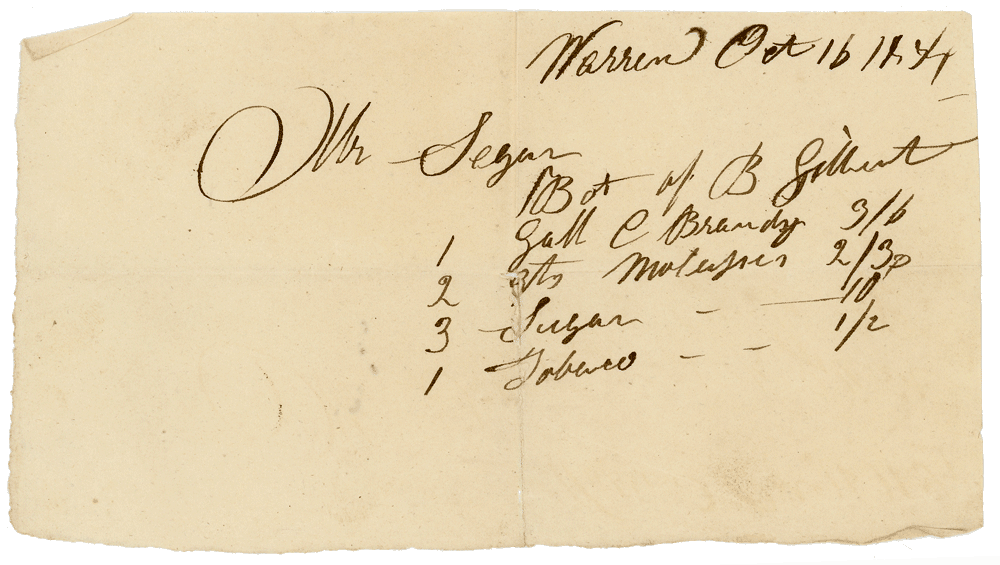 Warren Oct 16
Mr Segar
Bot of B Gilbert
1 Gall C Brandy 3/6
2 qts Molasses 2/3
3 Sugar - — 10
1 Tobacco - - 1/2